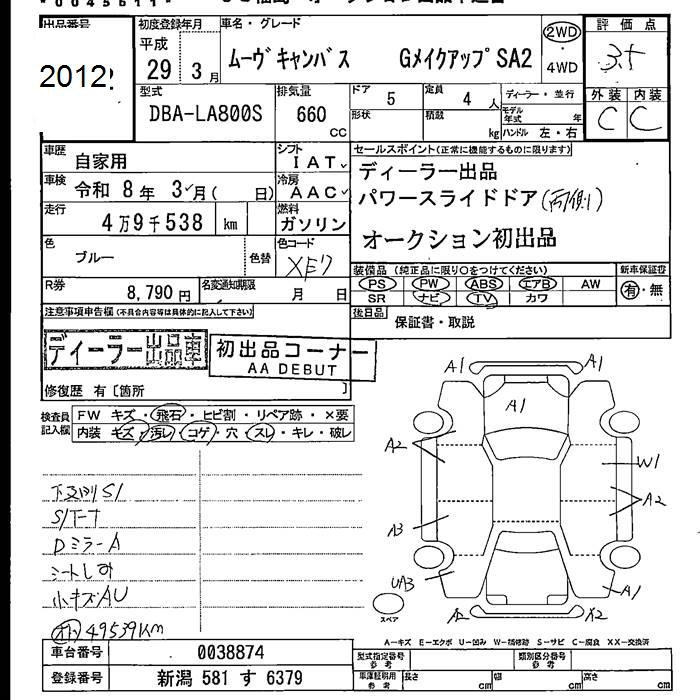 出品番号
2012
初度登録年月
平成
29年 3月
車名・グレード
ムーヴキャンバス Gメイクアップ SA2
2WD
・4WD
評価点
3.5
外装 内装
C C
型式
DBA-LA800S
排気量
660
CC
ドア
5
定員
4人
形状
積載
kg
ディーラー・並行
モデル年式 年
ハンドル 左・右
車歴
自家用
シフト
IAT
車検
令和 8年 3月( 日)
冷房
AAC
走行
4万9千538 km
燃料
ガソリン
色
ブルー
色替
色コード
R券
8,790円
名変通知期限
月 日
セールスポイント(正常に機能するものに限ります)
ディーラー出品
パワースライドドア(両側)
オークション初出品
装備品(純正品に限り○をつけてください)
PS PW ABS エアB AW
SR ナビ TV カワ
新車保証書
有・無
後日品
保証書・取説
注意事項申告欄(不具合内容等は具体的に記入して下さい)
ディーラー出品車
初出品コーナー
AA DEBUT
修復歴 有〔箇所 〕
検査員記入欄
FW キズ・飛石・ヒビ割・リペア跡・×要
内装 キズ・汚レ・コゲ・穴・スレ・キレ・破レ
S/T-T
DミラーA
小キズAU
49539Km
A1 A1
A1
A2
W1
A2
A3
UA3
A1
A2 X2
スペア
A-キズ E-エクボ U-凹み W-補修跡 S-サビ C-腐食 XX-交換済
車台番号
0038874
登録番号
新潟 581 す 6379
型式指定番号
参考
類別区分番号
参考
車庫証明用
参考
長さ cm
幅 cm
高さ cm